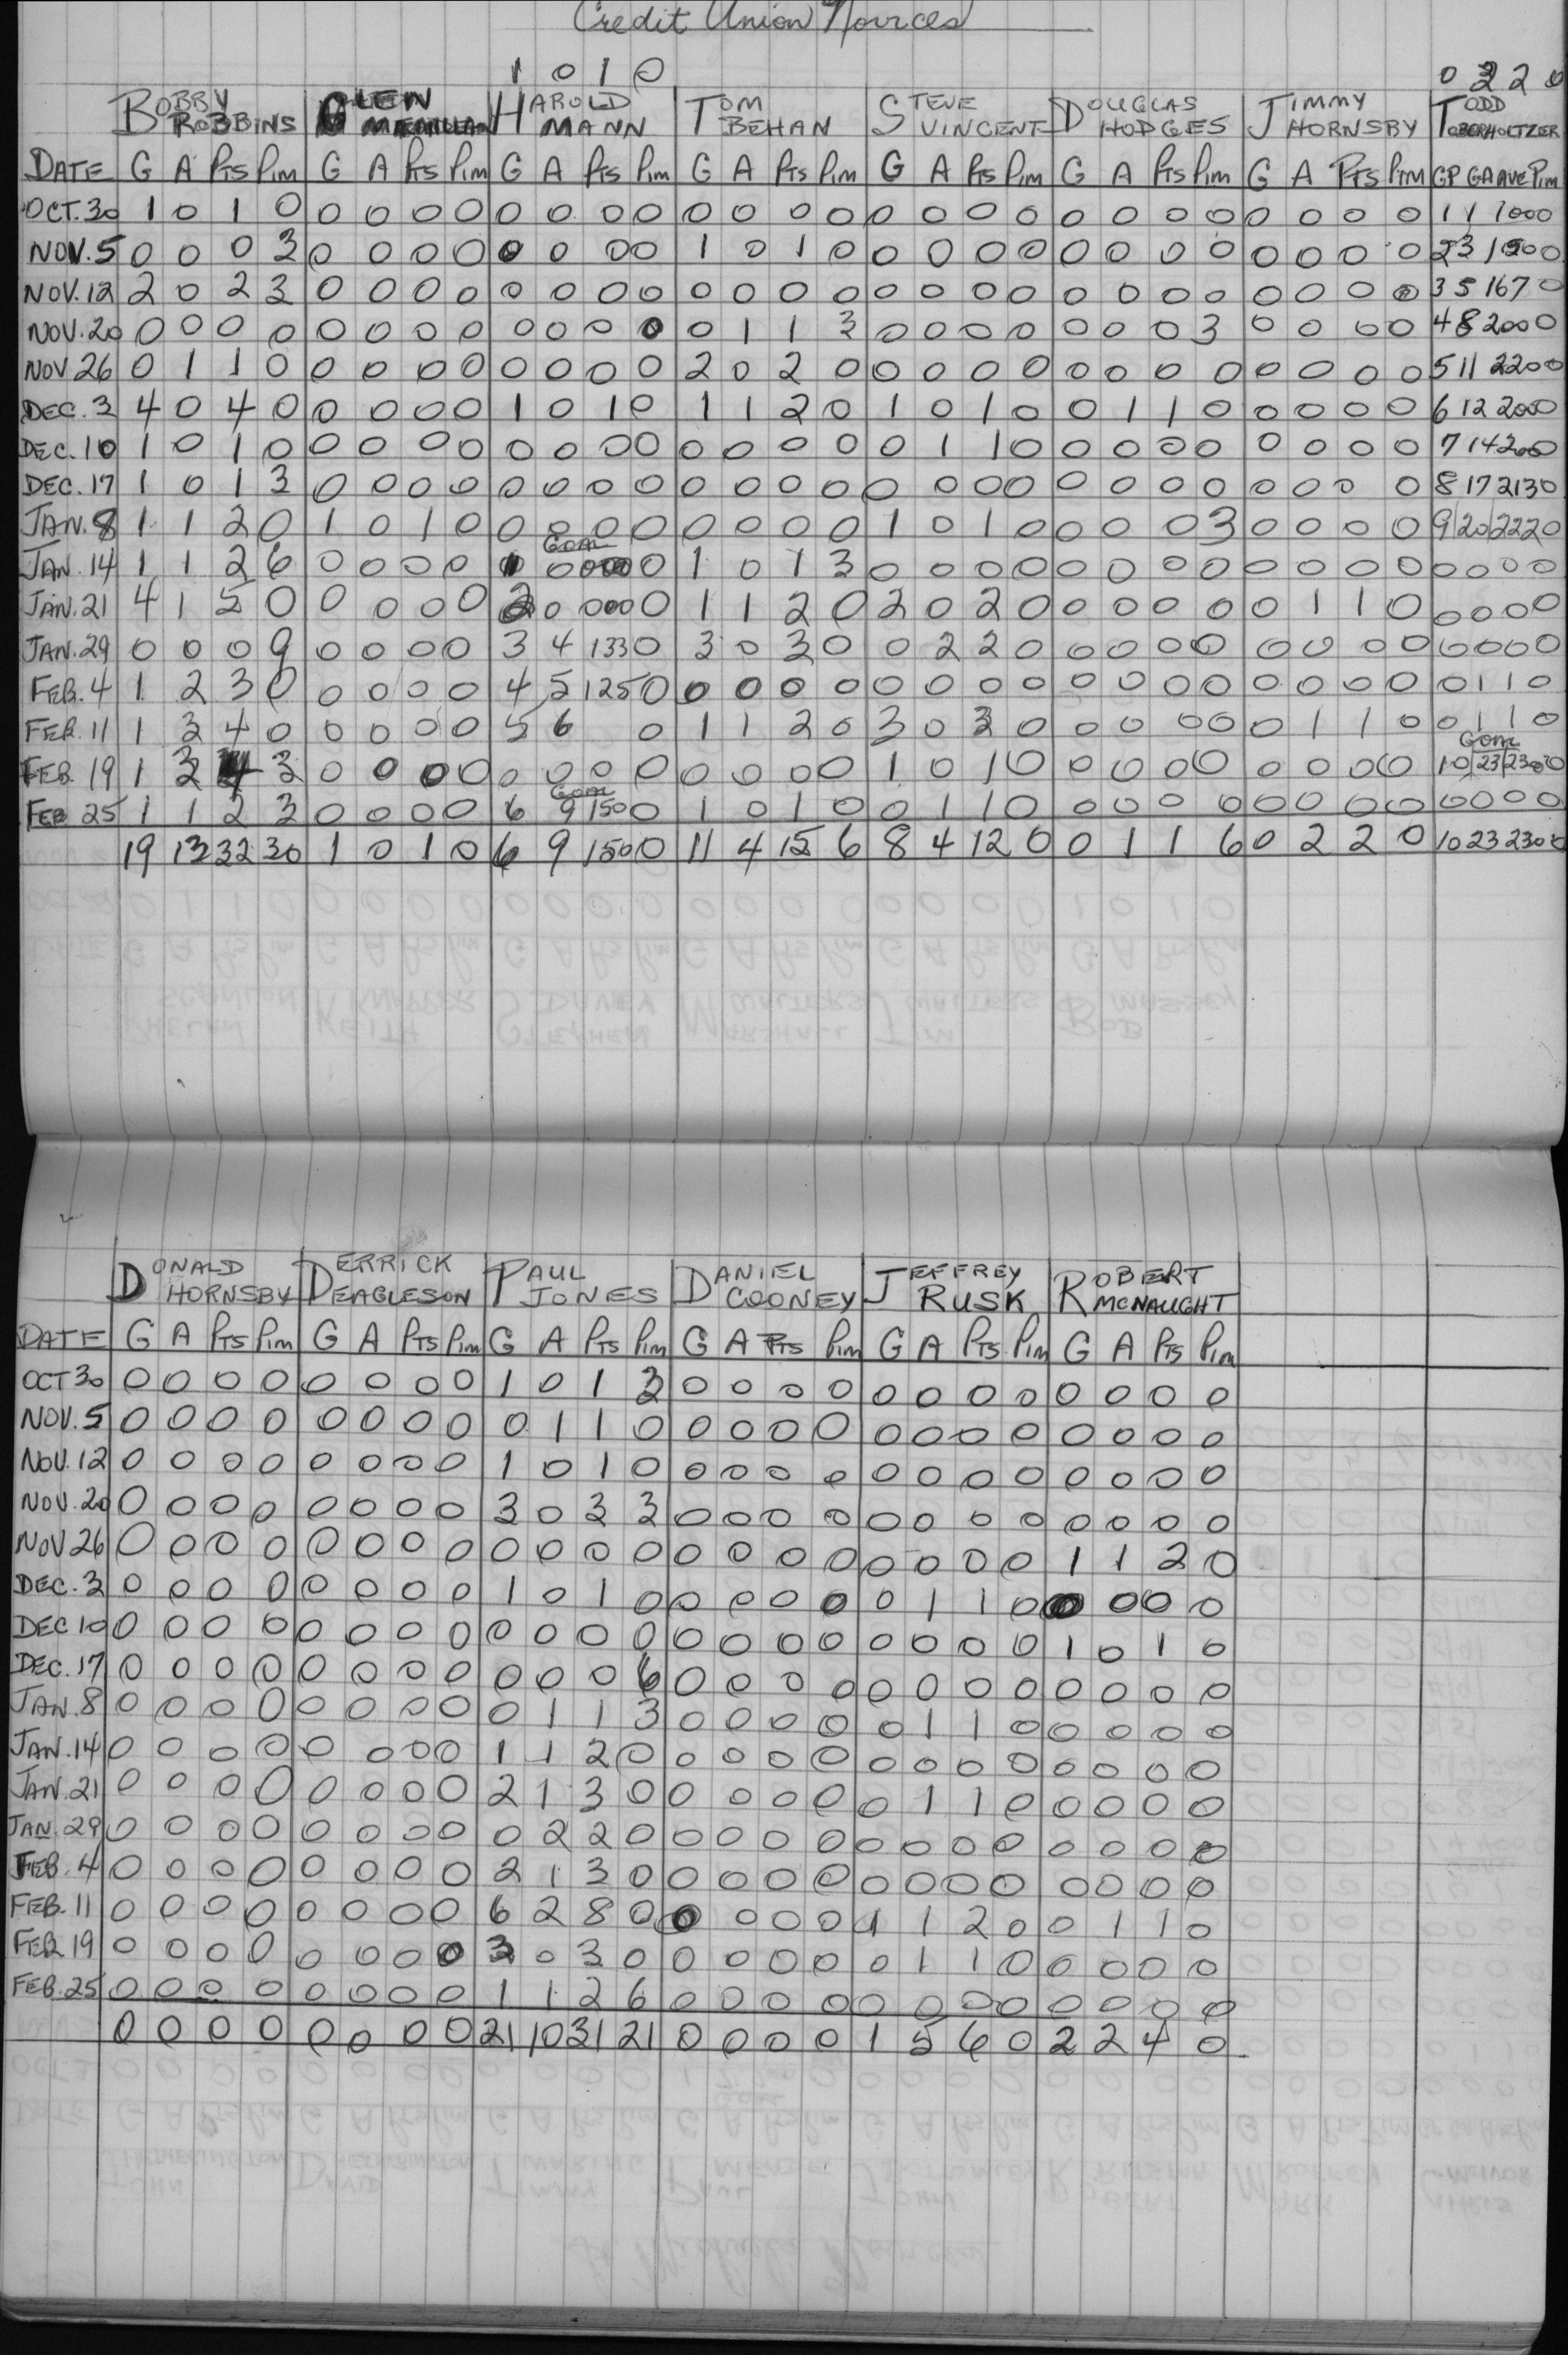 Credit Union Novices
1 0 1 0 0 3 2 2 0
BOBBY ROBBINS GLEN HAROLD MANN TOM BEHAN STEVE VINCENT DOUGLAS HODGES JIMMY HORNSBY TODD OBERHOLTZER
DATE G A PTS PIM G A PTS PIM G A PTS PIM G A PTS PIM G A PTS PIM G A PTS PIM G A PTS PIM GP GA AVE PIM
OCT. 30 1 0 1 0 0 0 0 0 0 0 0 0 0 0 0 0 0 0 0 0 0 0 0 0 0 0 0 0 1 1 100 0
NOV. 5 0 0 0 3 0 0 0 0 0 0 0 0 1 0 1 0 0 0 0 0 0 0 0 0 0 0 0 0 2 3 150 0
NOV. 12 2 0 2 3 0 0 0 0 0 0 0 0 0 0 0 0 0 0 0 0 0 0 0 0 0 0 0 0 3 5 167 0
NOV. 20 0 0 0 0 0 0 0 0 0 0 0 0 0 1 1 3 0 0 0 0 0 0 0 3 0 0 0 0 4 8 200 0
NOV 26 0 1 1 0 0 0 0 0 0 0 0 0 2 0 2 0 0 0 0 0 0 0 0 0 0 0 0 0 5 11 220 0
DEC. 3 4 0 4 0 0 0 0 0 1 0 1 0 1 1 2 0 1 0 1 0 0 1 1 0 0 0 0 0 6 12 200 0
DEC. 10 1 0 1 0 0 0 0 0 0 0 0 0 0 0 0 0 0 1 1 0 0 0 0 0 0 0 0 0 7 14 200
DEC. 17 1 0 1 3 0 0 0 0 0 0 0 0 0 0 0 0 0 0 0 0 0 0 0 0 0 0 0 0 8 17 213 0
JAN. 8 1 1 2 0 1 0 1 0 0 0 0 0 0 0 0 0 1 0 1 0 0 0 0 3 0 0 0 0 9 20 222 0
GOAL
JAN. 14 1 1 2 6 0 0 0 0 1 0 000 0 1 0 1 3 0 0 0 0 0 0 0 0 0 0 0 0 0 0 0 0
JAN. 21 4 1 5 0 0 0 0 0 2 0 000 0 1 1 2 0 2 0 2 0 0 0 0 0 0 1 1 0 0 0 0 0
JAN. 29 0 0 0 9 0 0 0 0 3 4 133 0 3 0 3 0 0 2 2 0 0 0 0 0 0 0 0 0 0 0 0 0
FEB. 4 1 2 3 0 0 0 0 0 4 5 125 0 0 0 0 0 0 0 0 0 0 0 0 0 0 0 0 0 0 1 1 0
FEB. 11 1 3 4 0 0 0 0 0 5 6 0 1 1 2 0 3 0 3 0 0 0 0 0 0 1 1 0 0 1 1 0
GOAL
FEB. 19 1 3 4 3 0 0 0 0 0 0 0 0 0 0 0 0 1 0 1 0 0 0 0 0 0 0 0 0 10 23 230 0
GOAL
FEB 25 1 1 2 3 0 0 0 0 6 9 150 0 1 0 1 0 0 1 1 0 0 0 0 0 0 0 0 0 0 0 0 0
19 13 32 30 1 0 1 0 6 9 150 0 11 4 15 6 8 4 12 0 0 1 1 6 0 2 2 0 10 23 230 0
DONALD HORNSBY DERRICK DEAGLESON PAUL JONES DANIEL COONEY JEFFREY RUSK ROBERT MCNAUGHT
DATE G A PTS PIM G A PTS PIM G A PTS PIM G A PTS PIM G A PTS PIM G A PTS PIM
OCT 30 0 0 0 0 0 0 0 0 1 0 1 3 0 0 0 0 0 0 0 0 0 0 0 0
NOV. 5 0 0 0 0 0 0 0 0 0 1 1 0 0 0 0 0 0 0 0 0 0 0 0 0
NOV. 12 0 0 0 0 0 0 0 0 1 0 1 0 0 0 0 0 0 0 0 0 0 0 0 0
NOV. 20 0 0 0 0 0 0 0 0 3 0 3 3 0 0 0 0 0 0 0 0 0 0 0 0
NOV 26 0 0 0 0 0 0 0 0 0 0 0 0 0 0 0 0 0 0 0 0 1 1 2 0
DEC. 3 0 0 0 0 0 0 0 0 1 0 1 0 0 0 0 0 0 1 1 0 0 0 0 0
DEC 10 0 0 0 0 0 0 0 0 0 0 0 0 0 0 0 0 0 0 0 0 1 0 1 0
DEC. 17 0 0 0 0 0 0 0 0 0 0 0 6 0 0 0 0 0 0 0 0 0 0 0 0
JAN. 8 0 0 0 0 0 0 0 0 0 1 1 3 0 0 0 0 0 1 1 0 0 0 0 0
JAN. 14 0 0 0 0 0 0 0 0 1 1 2 0 0 0 0 0 0 0 0 0 0 0 0 0
JAN. 21 0 0 0 0 0 0 0 0 2 1 3 0 0 0 0 0 0 1 1 0 0 0 0 0
JAN. 29 0 0 0 0 0 0 0 0 0 2 2 0 0 0 0 0 0 0 0 0 0 0 0 0
FEB. 4 0 0 0 0 0 0 0 0 2 1 3 0 0 0 0 0 0 0 0 0 0 0 0 0
FEB. 11 0 0 0 0 0 0 0 0 6 2 8 0 0 0 0 0 1 1 2 0 0 1 1 0
FEB. 19 0 0 0 0 0 0 0 0 3 0 3 0 0 0 0 0 0 1 1 0 0 0 0 0
FEB. 25 0 0 0 0 0 0 0 0 1 1 2 6 0 0 0 0 0 0 0 0 0 0 0 0
0 0 0 0 0 0 0 0 21 10 31 21 0 0 0 0 1 5 6 0 2 2 4 0